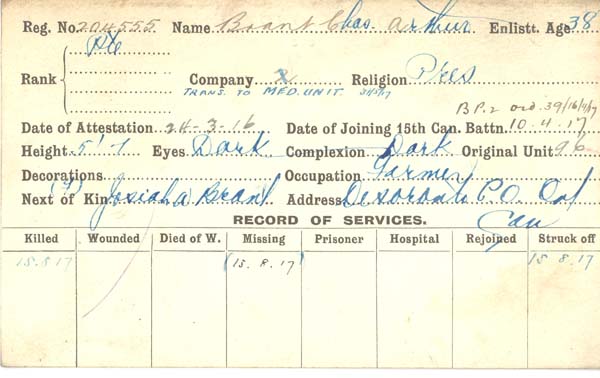 Reg. No. 204555 Name Brant Chas. Arthur Enlistt. Age 38
Pte
Rank Company Religion Pres
TRANS. TO MED. UNIT
B.P.2 ord. 39/16/4/17
Date of Attestation 24-3-16 Date of Joining 15th Can. Battn. 10.4.17
Height 5'-7 Eyes Dark Complexion Dark Original Unit 96
Decorations Occupation Farmer
Next of Kin Josiah Brant Address Deseronto P.O. Ont
Can
RECORD OF SERVICES.
Killed Wounded Died of W. Missing Prisoner Hospital Rejoined Struck off
15.8.17 (15.8.17) 15 8.17